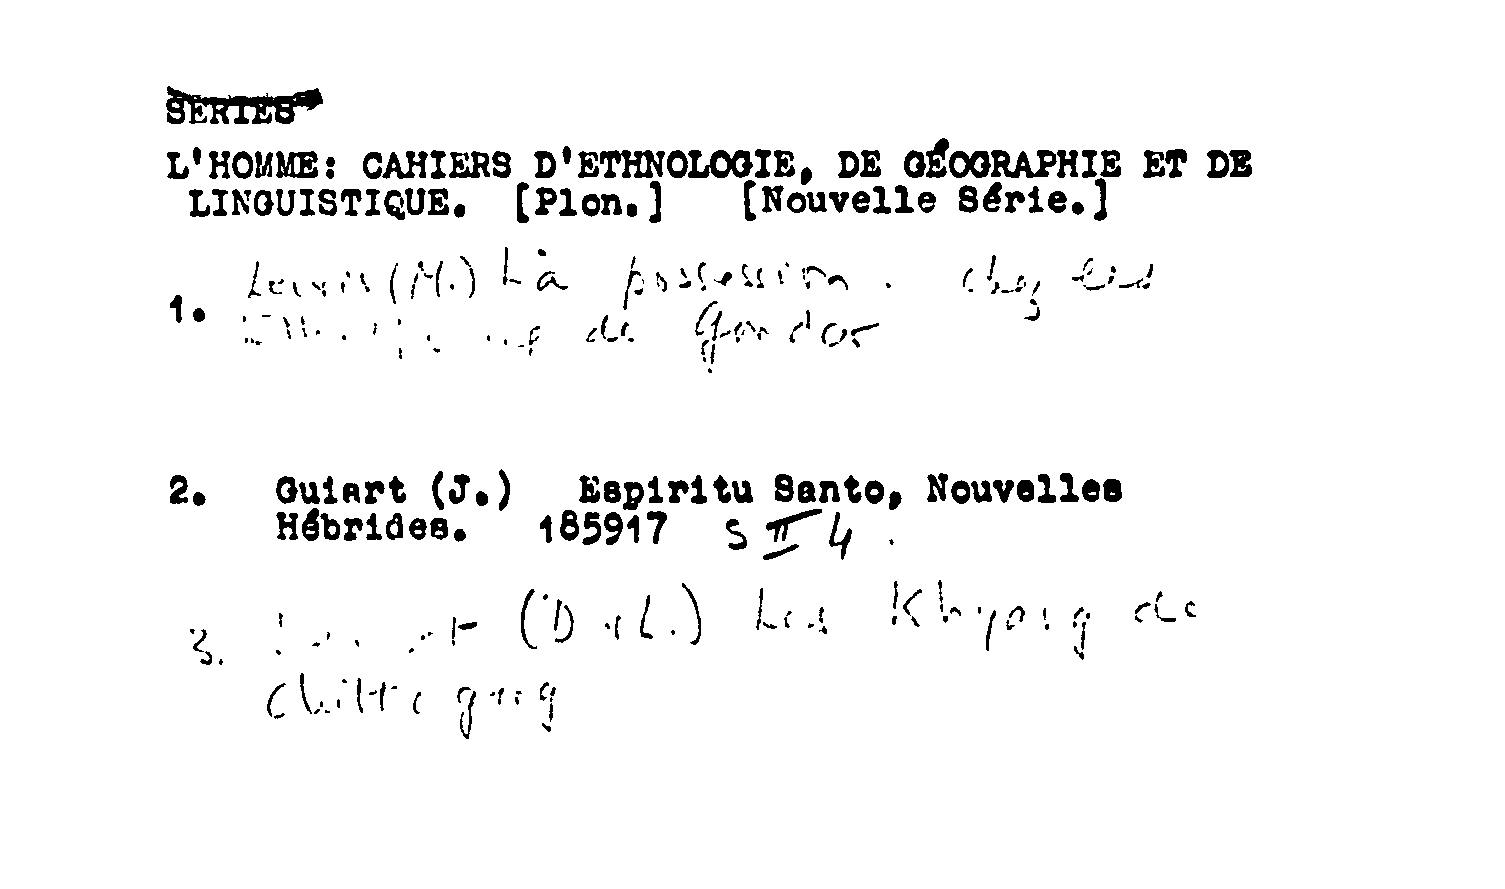 SERIES
L'HOMME: CAHIERS D'ETHNOLOGIE, DE GÉOGRAPHIE ET DE
LINGUISTIQUE. [Plon.] [Nouvelle Série.]
1. Leiris (M.) La possession. chez les
de Gondar
2. Guiart (J.) Espiritu Santo, Nouvelles
Hébrides. 185917 S II 4.
3. (D. & L.) Les Khyang de
Chittagong